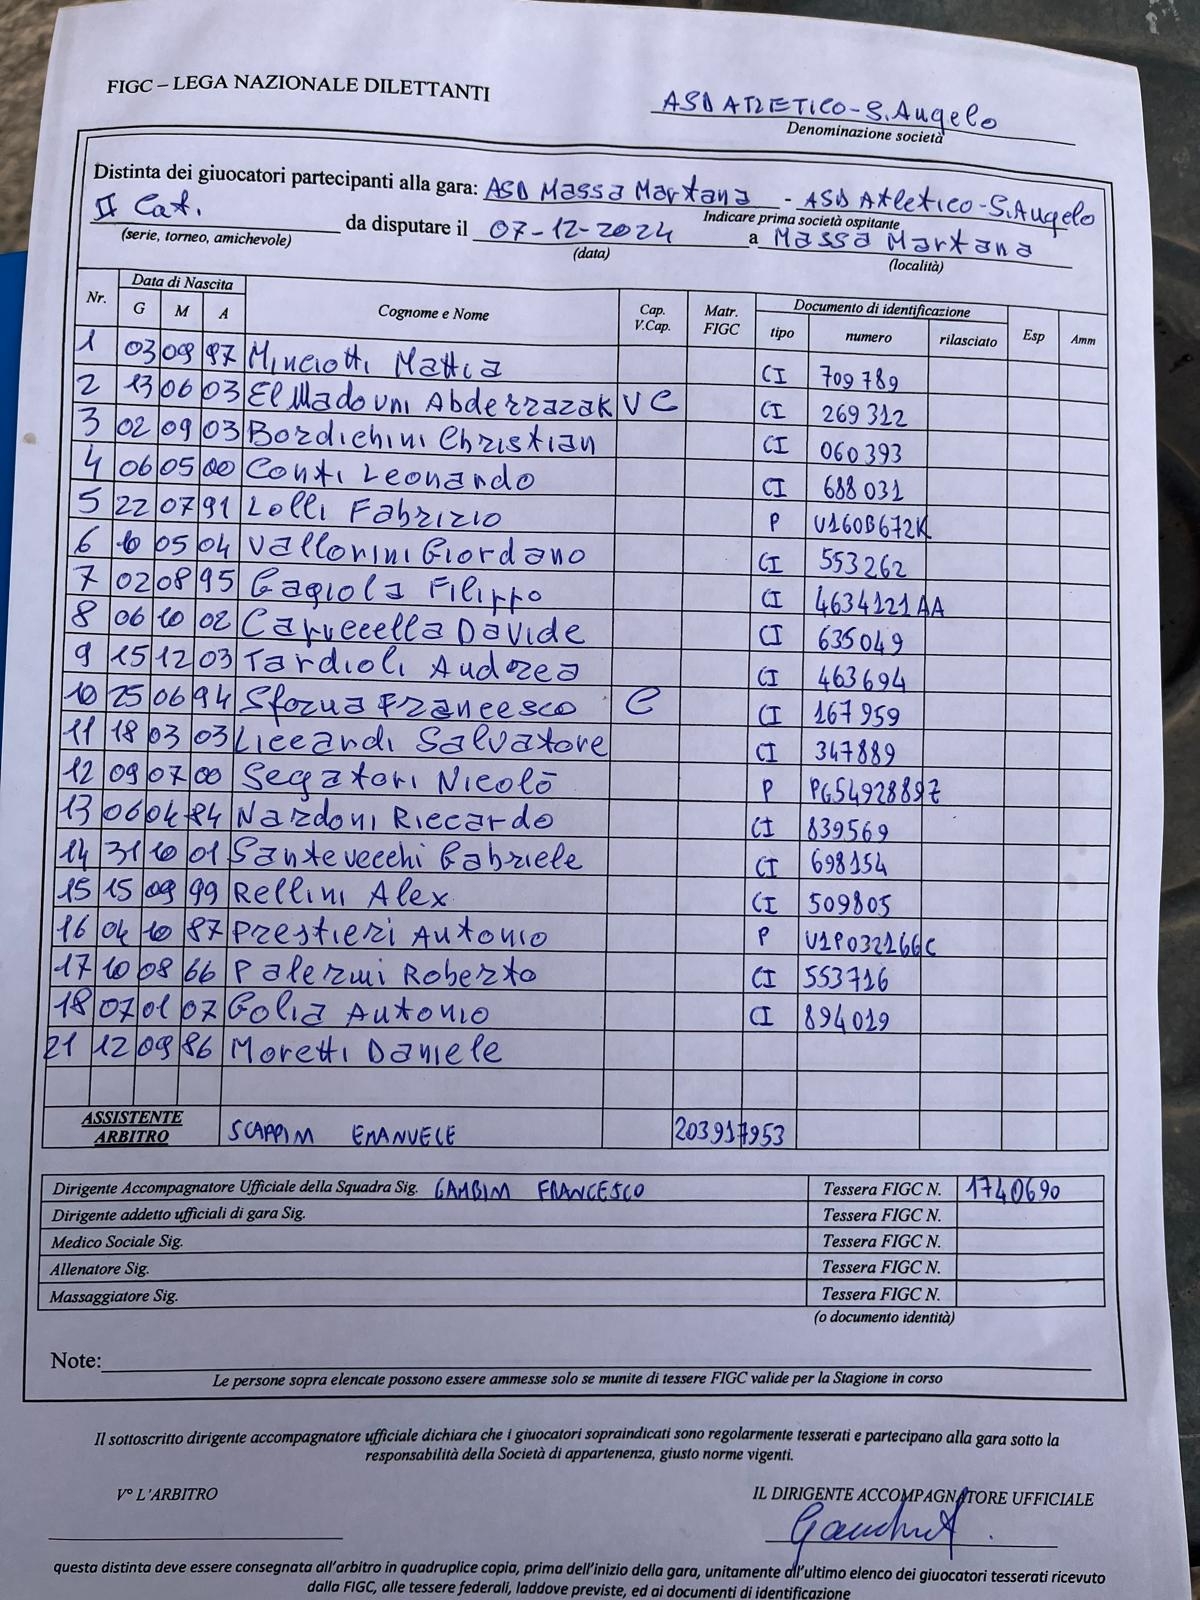 FIGC – LEGA NAZIONALE DILETTANTI
ASD ATLETICO-S.Angelo
Denominazione società
Distinta dei giuocatori partecipanti alla gara: ASD Massa Martana - ASD Atletico-S.Angelo
Indicare prima società ospitante
II Cat. da disputare il 07-12-2024 a Massa Martana
(serie, torneo, amichevole) (data) (località)
Nr. Data di Nascita Cognome e Nome Cap. V.Cap. Matr. FIGC Documento di identificazione Esp Amm
G M A tipo numero rilasciato
1 03 09 97 Minciotti Mattia CI 709789
2 13 06 03 El Madouni Abderrazak VC CI 269312
3 02 09 03 Bordichini Christian CI 060393
4 06 05 00 Conti Leonardo CI 688031
5 22 07 91 Lolli Fabrizio P U160B672K
6 10 05 04 Vallorini Giordano CI 553262
7 02 08 95 Gagiola Filippo CI 4634121AA
8 06 10 02 Caruccella Davide CI 635049
9 15 12 03 Tardioli Andrea CI 463694
10 25 06 94 Sforna Francesco C CI 167959
11 18 03 03 Liccardi Salvatore CI 347889
12 09 07 00 Segatori Nicolò P PG5492889Z
13 06 04 84 Nardoni Riccardo CI 839569
14 31 10 01 Santevecchi Gabriele CI 698154
15 15 09 99 Rellini Alex CI 509805
16 04 10 87 Prestieri Antonio P U1P032166C
17 10 08 66 Palermi Roberto CI 553716
18 07 01 07 Golia Antonio CI 894019
21 12 09 86 Moretti Daniele
ASSISTENTE ARBITRO SCAPPINI EMANUELE 203917953
Dirigente Accompagnatore Ufficiale della Squadra Sig. GAMBINI FRANCESCO Tessera FIGC N. 1740690
Dirigente addetto ufficiali di gara Sig. Tessera FIGC N.
Medico Sociale Sig. Tessera FIGC N.
Allenatore Sig. Tessera FIGC N.
Massaggiatore Sig. Tessera FIGC N.
(o documento identità)
Note:
Le persone sopra elencate possono essere ammesse solo se munite di tessere FIGC valide per la Stagione in corso
Il sottoscritto dirigente accompagnatore ufficiale dichiara che i giuocatori sopraindicati sono regolarmente tesserati e partecipano alla gara sotto la
responsabilità della Società di appartenenza, giusto norme vigenti.
V° L'ARBITRO IL DIRIGENTE ACCOMPAGNATORE UFFICIALE
questa distinta deve essere consegnata all'arbitro in quadruplice copia, prima dell'inizio della gara, unitamente all'ultimo elenco dei giuocatori tesserati ricevuto
dalla FIGC, alle tessere federali, laddove previste, ed ai documenti di identificazione